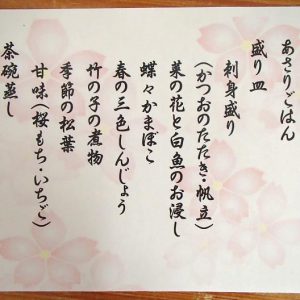 あさりごはん
盛り皿
刺身盛り
(かつおのたたき・帆立)
菜の花と白魚のお浸し
蝶々かまぼこ
春の三色しんじょう
竹の子の煮物
季節の松葉
甘味(桜もち・いちご)
茶碗蒸し